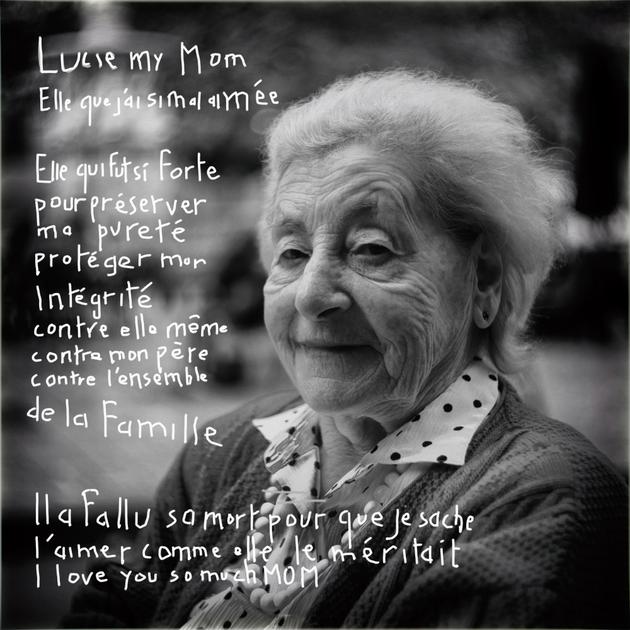 Lucie my Mom
Elle que j'ai si mal aimée
Elle qui fut si Forte
pour préserver
ma pureté
protéger mon
Intégrité
contre elle même
contre mon père
contre l'ensemble
de la Famille
Il a Fallu sa mort pour que je sache
l'aimer comme elle le méritait
I love you so much MOM